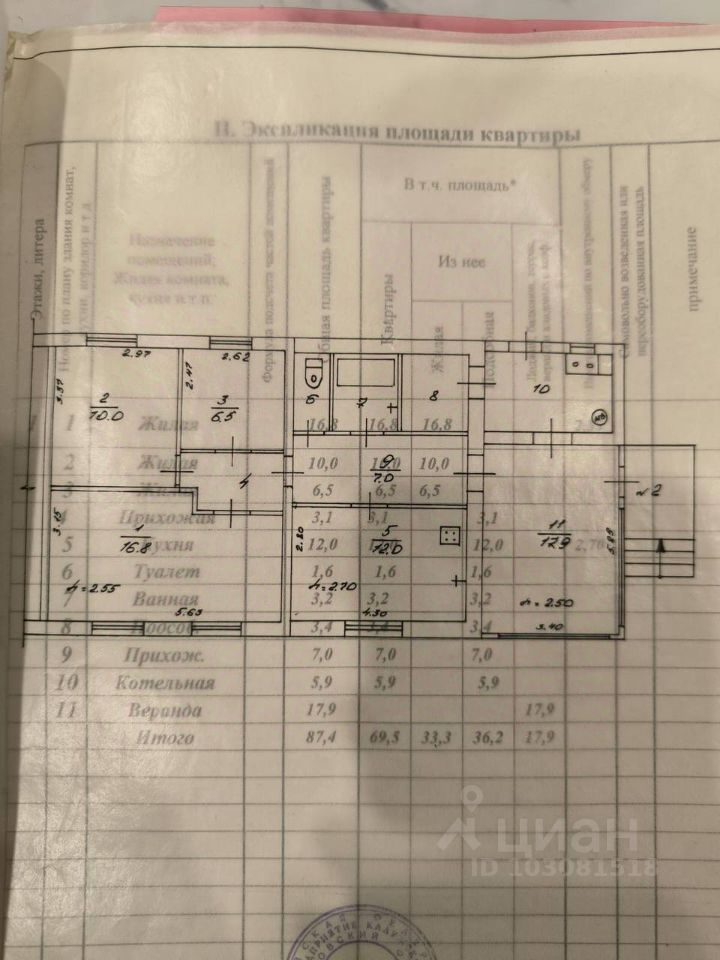 II. Экспликация площади квартиры
Этажи, литера
Номер по плану здания комнат, кухни, коридор и т.д
Назначение помещений; Жилая комната, кухня и т.п.
Формула подсчета частей помещений
Общая площадь квартиры
В т.ч. площадь*
Квартиры
Из нее
Жилая
Подсобная
Самовольно возведенная или переоборудованная площадь
примечание
1 1 Жилая 16,8 16,8 16,8
2 Жилая 10,0 10,0 10,0
3 Жилая 6,5 6,5 6,5
4 Прихожая 3,1 3,1 3,1
5 Кухня 12,0 12,0 12,0 2,70
6 Туалет 1,6 1,6 1,6
7 Ванная 3,2 3,2 3,2
8 3,4 3,4 3,4
9 Прихож. 7,0 7,0 7,0
10 Котельная 5,9 5,9 5,9
11 Веранда 17,9 17,9
Итого 87,4 69,5 33,3 36,2 17,9
2.97
2.62
3.37
2.47
2
10.0
3
6.5
6
7
8
10
4
9
7.0
1
16.8
3.15
h=2.55
5.63
2.80
5
12.0
h=2.70
4.30
11
17.9
5.89
h=2.50
3.40
№2
циан
ID 103081518